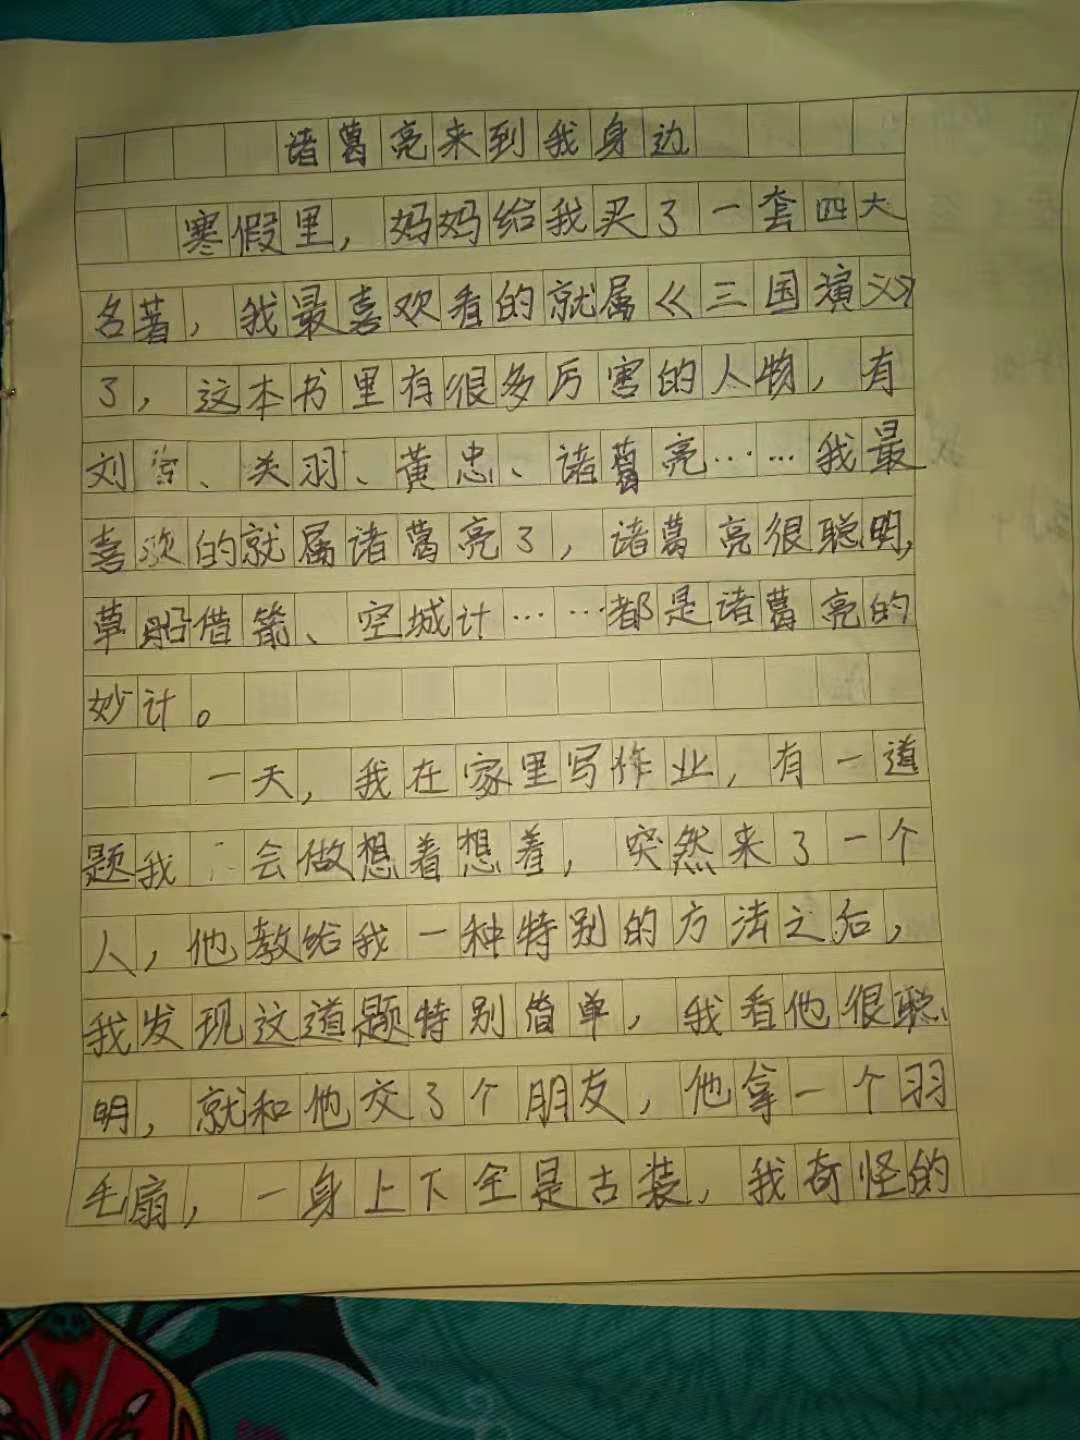 诸葛亮来到我身边
寒假里，妈妈给我买了一套四大
名著，我最喜欢看的就属《三国演义》
了，这本书里有很多厉害的人物，有
刘、关羽、黄忠、诸葛亮……我最
喜欢的就属诸葛亮了，诸葛亮很聪明，
草船借箭、空城计……都是诸葛亮的
妙计。
一天，我在家里写作业，有一道
题我会做想着想着，突然来了一个
人，他教给我一种特别的方法之后，
我发现这道题特别简单，我看他很聪
明，就和他交了个朋友，他拿一个羽
毛扇，一身上下全是古装，我奇怪的